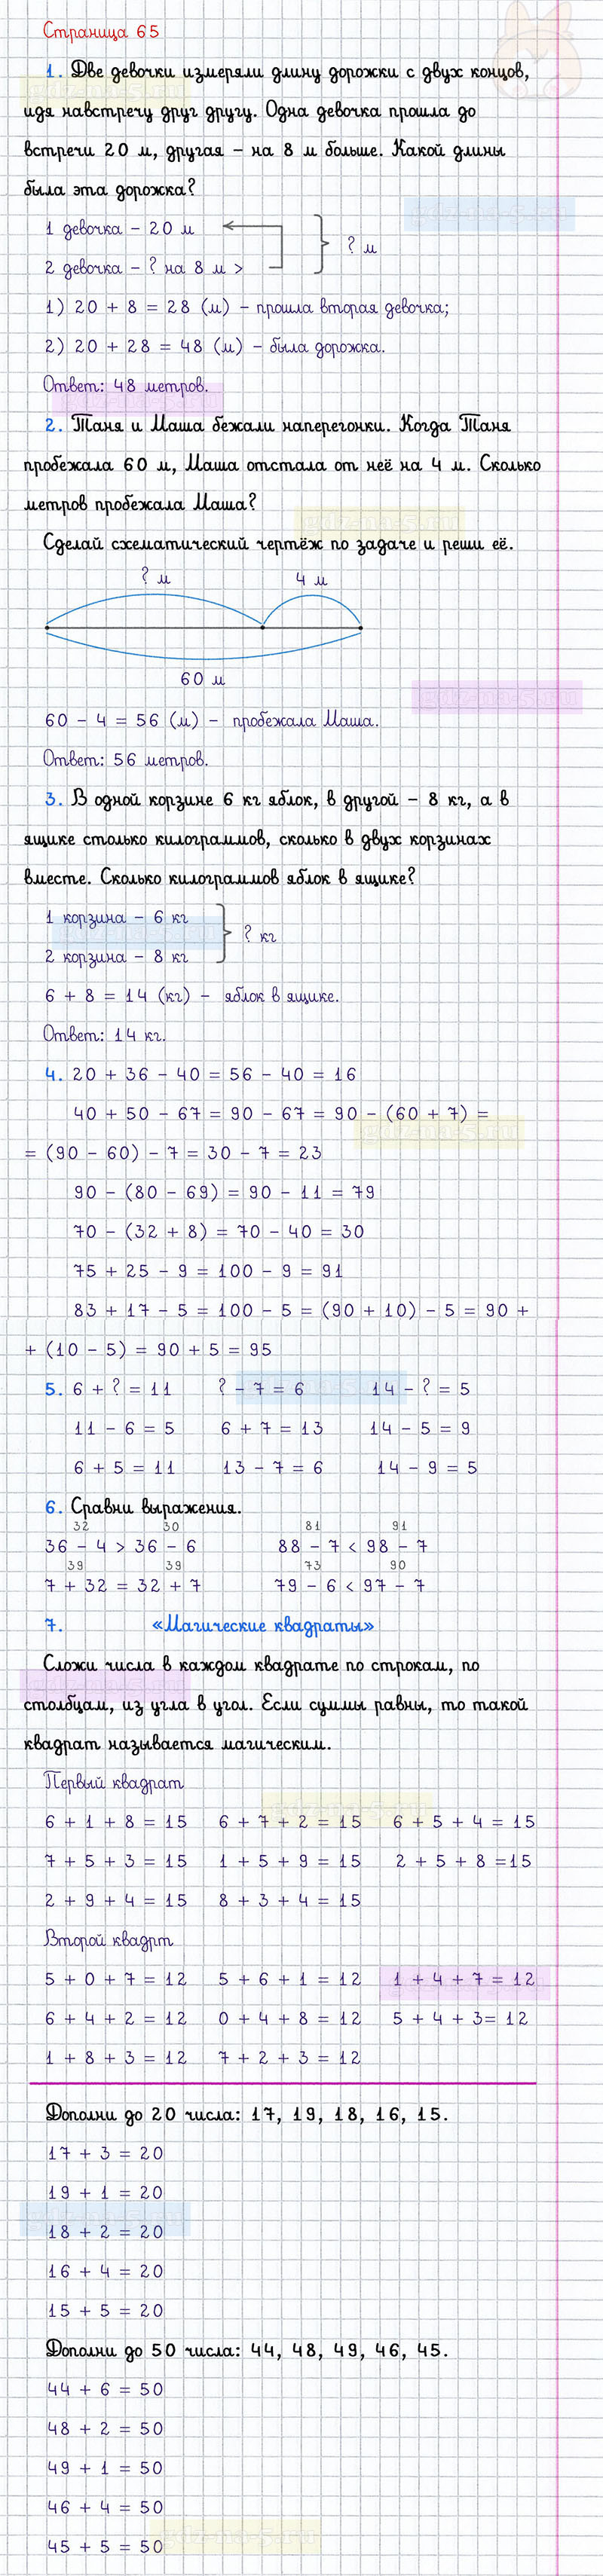 Страница 65
1. Две девочки измеряли длину дорожки с двух концов,
идя навстречу друг другу. Одна девочка прошла до
встречи 20 м, другая – на 8 м больше. Какой длины
была эта дорожка?
1 девочка – 20 м
? м
2 девочка – ? на 8 м >
1) 20 + 8 = 28 (м) – прошла вторая девочка;
2) 20 + 28 = 48 (м) – была дорожка.
Ответ: 48 метров.
2. Таня и Маша бежали наперегонки. Когда Таня
пробежала 60 м, Маша отстала от неё на 4 м. Сколько
метров пробежала Маша?
Сделай схематический чертёж по задаче и реши её.
? м 4 м
60 м
60 – 4 = 56 (м) – пробежала Маша.
Ответ: 56 метров.
3. В одной корзине 6 кг яблок, в другой – 8 кг, а в
ящике столько килограммов, сколько в двух корзинах
вместе. Сколько килограммов яблок в ящике?
1 корзина – 6 кг
? кг
2 корзина – 8 кг
6 + 8 = 14 (кг) – яблок в ящике.
Ответ: 14 кг.
4. 20 + 36 – 40 = 56 – 40 = 16
40 + 50 – 67 = 90 – 67 = 90 – (60 + 7) =
= (90 – 60) – 7 = 30 – 7 = 23
90 – (80 – 69) = 90 – 11 = 79
70 – (32 + 8) = 70 – 40 = 30
75 + 25 – 9 = 100 – 9 = 91
83 + 17 – 5 = 100 – 5 = (90 + 10) – 5 = 90 +
+ (10 – 5) = 90 + 5 = 95
5. 6 + ? = 11 ? – 7 = 6 14 – ? = 5
11 – 6 = 5 6 + 7 = 13 14 – 5 = 9
6 + 5 = 11 13 – 7 = 6 14 – 9 = 5
6. Сравни выражения.
32 30 81 91
36 – 4 > 36 – 6 88 – 7 < 98 – 7
39 39 73 90
7 + 32 = 32 + 7 79 – 6 < 97 – 7
7. «Магические квадраты»
Сложи числа в каждом квадрате по строкам, по
столбцам, из угла в угол. Если суммы равны, то такой
квадрат называется магическим.
Первый квадрат
6 + 1 + 8 = 15 6 + 7 + 2 = 15 6 + 5 + 4 = 15
7 + 5 + 3 = 15 1 + 5 + 9 = 15 2 + 5 + 8 =15
2 + 9 + 4 = 15 8 + 3 + 4 = 15
Второй квадрт
5 + 0 + 7 = 12 5 + 6 + 1 = 12 1 + 4 + 7 = 12
6 + 4 + 2 = 12 0 + 4 + 8 = 12 5 + 4 + 3= 12
1 + 8 + 3 = 12 7 + 2 + 3 = 12
Дополни до 20 числа: 17, 19, 18, 16, 15.
17 + 3 = 20
19 + 1 = 20
18 + 2 = 20
16 + 4 = 20
15 + 5 = 20
Дополни до 50 числа: 44, 48, 49, 46, 45.
44 + 6 = 50
48 + 2 = 50
49 + 1 = 50
46 + 4 = 50
45 + 5 = 50
gdz-na-5.ru